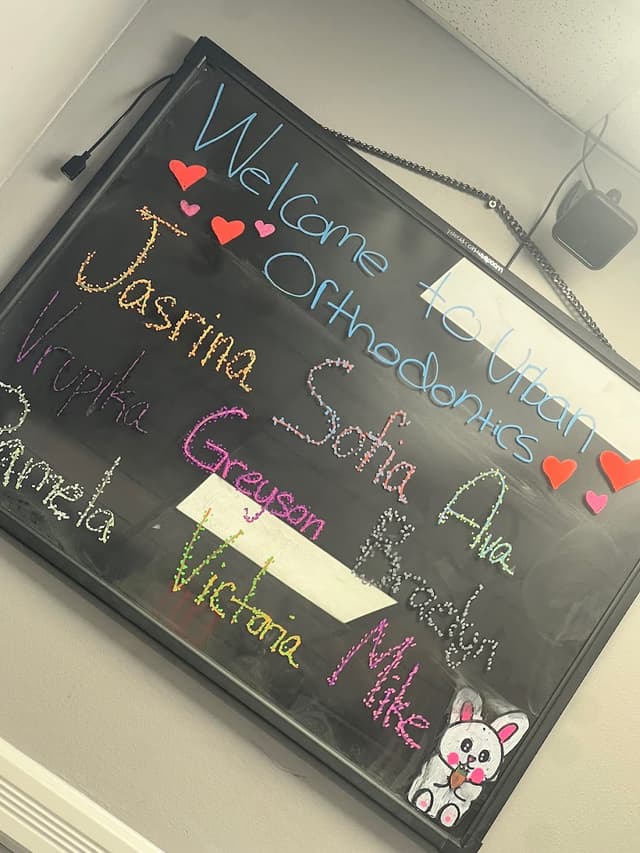 Welcome to Urban
Orthodontics
Jasrina Sofia Ava
Vrupika Greyson Braelyn
Pamela Victoria Mike